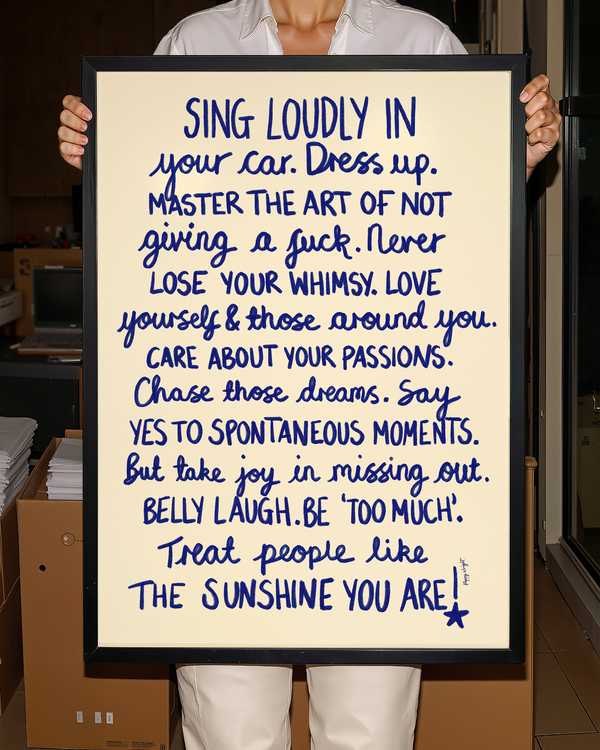 SING LOUDLY IN
your car. Dress up.
MASTER THE ART OF NOT
giving a fuck. Never
LOSE YOUR WHIMSY. LOVE
yourself & those around you.
CARE ABOUT YOUR PASSIONS.
Chase those dreams. Say
YES TO SPONTANEOUS MOMENTS.
But take joy in missing out.
BELLY LAUGH. BE 'TOO MUCH'.
Treat people like
THE SUNSHINE YOU ARE!